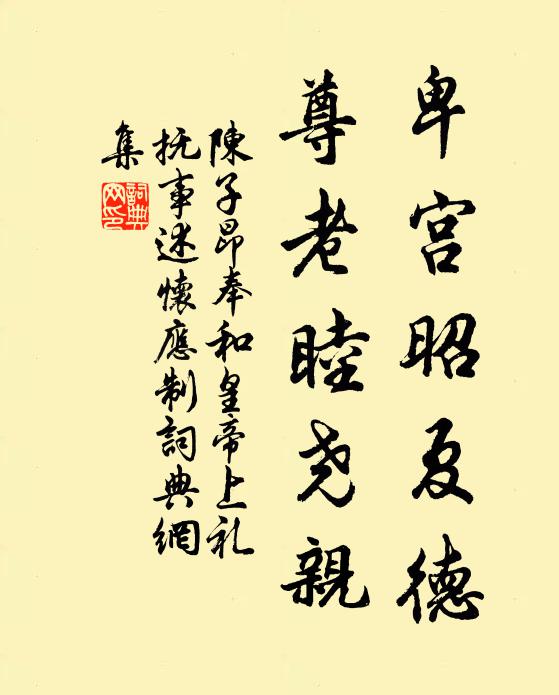 卑宮昭夏德
尊老睦堯親
陳子昂奉和皇帝上礼
抚事述懷應制詞典網
集
詞典
网印